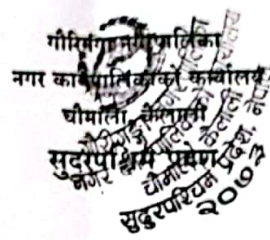 गौरीगंगा नगरपालिका
नगर कार्यपालिकाको कार्यालय
चौमाला, कैलाली
सुदूरपश्चिम प्रदेश
गौरीगंगा नगरपालिका
नगर कार्यपालिकाको कार्यालय
चौमाला, कैलाली
सुदुरपश्चिम प्रदेश, नेपाल
२०७३